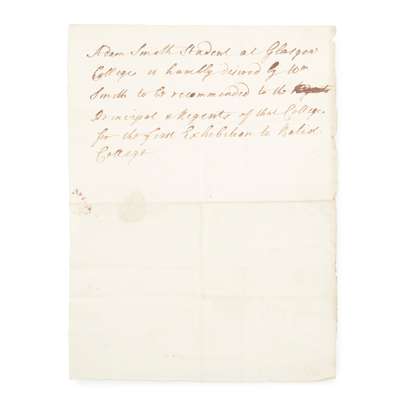 Adam Smith Student at Glasgow
College is humbly desired by Wm
Smith to be recommended to the
Principal & Regents of that College
for the first Exhibition to Baliol
College